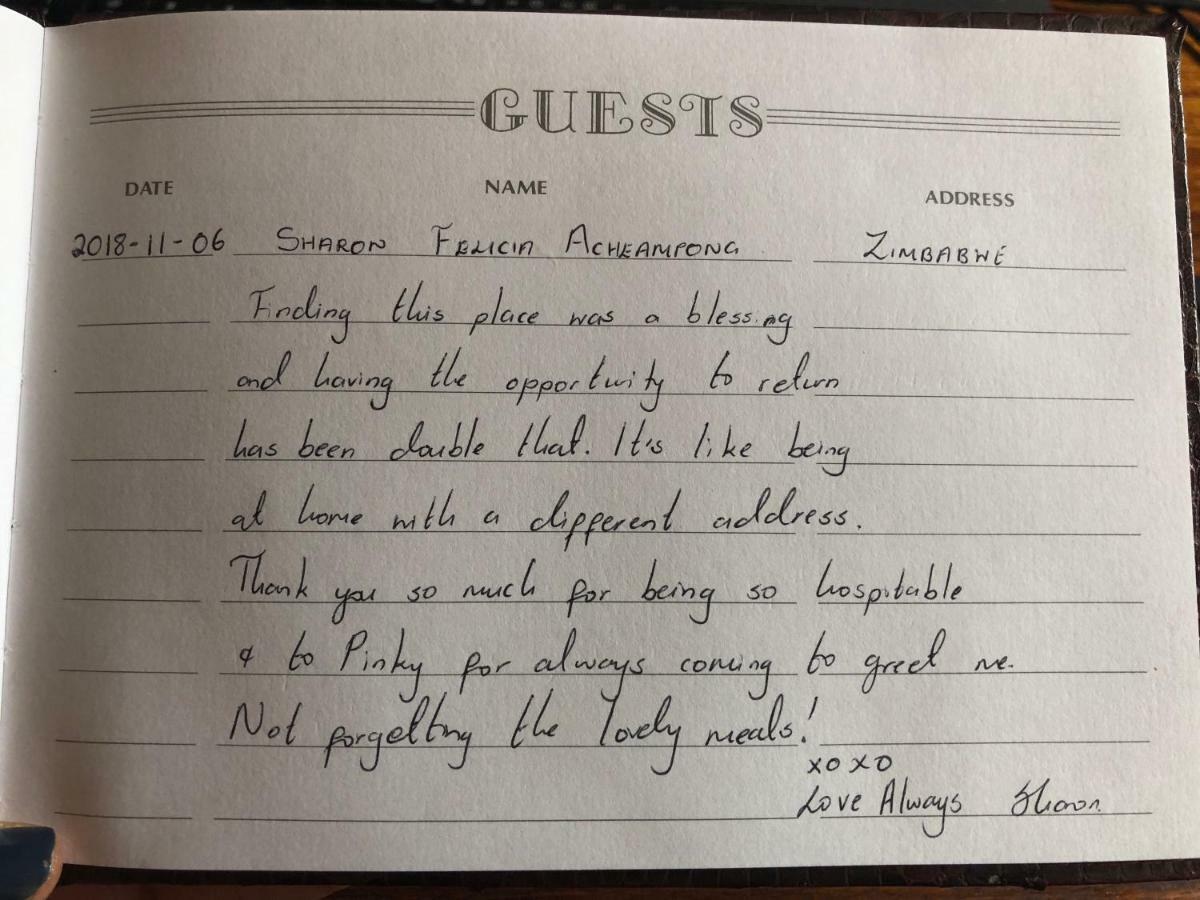 GUESTS
DATE NAME ADDRESS
2018-11-06 SHARON FELICIA ACHEAMPONG ZIMBABWE
Finding this place was a blessing
and having the opportunity to return
has been double that. It's like being
at home with a different address.
Thank you so much for being so hospitable
& to Pinky for always coming to greet me.
Not forgetting the lovely meals!
XOXO
Love Always Sharon